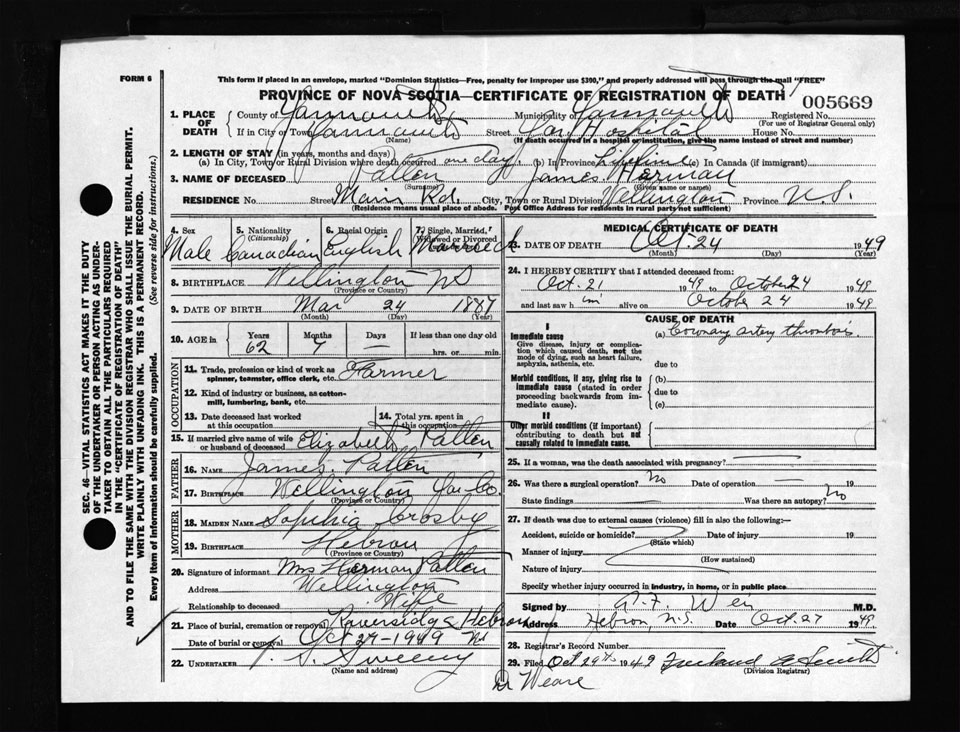 FORM 6
This form if placed in an envelope, marked "Dominion Statistics—Free, penalty for improper use $300," and properly addressed will pass through the mail "FREE"
PROVINCE OF NOVA SCOTIA—CERTIFICATE OF REGISTRATION OF DEATH
005669
1. PLACE OF DEATH
County of Yarmouth Municipality of Yarmouth Registered No.
(For use of Registrar General only)
If in City or Town Yarmouth Street Yar. Hospital House No.
(Name) (If death occurred in a hospital or institution, give the name instead of street and number)
2. LENGTH OF STAY (in years, months and days)
(a) In City, Town or Rural Division where death occurred one day (b) In Province Lifetime (c) In Canada (if immigrant)
3. NAME OF DECEASED Patten James Herman
(Surname) (Given name or names)
RESIDENCE No. Street Main Rd. City, Town or Rural Division Wellington Province N.S.
(Residence means usual place of abode. Post Office Address for residents in rural parts not sufficient)
4. Sex 5. Nationality (Citizenship) 6. Racial Origin 7. Single, Married, Widowed or Divorced
Male Canadian English Married
8. BIRTHPLACE Wellington NS
(Province or Country)
9. DATE OF BIRTH Mar 24 1887
(Month) (Day) (Year)
10. AGE in Years Months Days If less than one day old
62 7 — hrs. or min.
OCCUPATION
11. Trade, profession or kind of work as spinner, teamster, office clerk, etc. Farmer
12. Kind of industry or business, as cotton-mill, lumbering, bank, etc.
13. Date deceased last worked at this occupation
14. Total yrs. spent in this occupation
15. If married give name of wife or husband of deceased Elizabeth Patten
FATHER
16. NAME James Patten
17. BIRTHPLACE Wellington Yar. Co.
(Province or Country)
MOTHER
18. MAIDEN NAME Sophia Crosby
19. BIRTHPLACE Hebron
(Province or Country)
20. Signature of informant Mrs Herman Patten
Address Wellington
Relationship to deceased Wife
21. Place of burial, cremation or removal Hebron
Date of burial or removal Oct 27-1949 NS
22. UNDERTAKER Sweeny
(Name and address)
MEDICAL CERTIFICATE OF DEATH
23. DATE OF DEATH Oct. 24 1949
(Month) (Day) (Year)
24. I HEREBY CERTIFY that I attended deceased from:
Oct. 21 1949 to October 24 1949
and last saw him alive on October 24 1949
CAUSE OF DEATH
I
Immediate cause (a) Coronary artery thrombosis
Give disease, injury or complication which caused death, not the mode of dying, such as heart failure, asphyxia, asthenia, etc.
due to
Morbid conditions, if any, giving rise to immediate cause (stated in order proceeding backwards from immediate cause).
(b)
due to
(c)
II
Other morbid conditions (if important) contributing to death but not causally related to immediate cause.
25. If a woman, was the death associated with pregnancy? —
26. Was there a surgical operation? No Date of operation — 19
State findings Was there an autopsy? No
27. If death was due to external causes (violence) fill in also the following:—
Accident, suicide or homicide? Date of injury 19
(State which)
Manner of injury
(How sustained)
Nature of injury
Specify whether injury occurred in industry, in home, or in public place
Signed by M.D.
Address Hebron, N.S. Date Oct. 27 1949
28. Registrar's Record Number
29. Filed Oct 29th 1949
(Division Registrar)
Dr Weare
SEC. 46—VITAL STATISTICS ACT MAKES IT THE DUTY
OF THE UNDERTAKER OR PERSON ACTING AS UNDER-
TAKER TO OBTAIN ALL THE PARTICULARS REQUIRED
IN THE "CERTIFICATE OF REGISTRATION OF DEATH"
AND TO FILE THE SAME WITH THE DIVISION REGISTRAR WHO SHALL ISSUE THE BURIAL PERMIT.
WRITE PLAINLY WITH UNFADING INK. THIS IS A PERMANENT RECORD.
Every item of information should be carefully supplied. (See reverse side for instructions.)